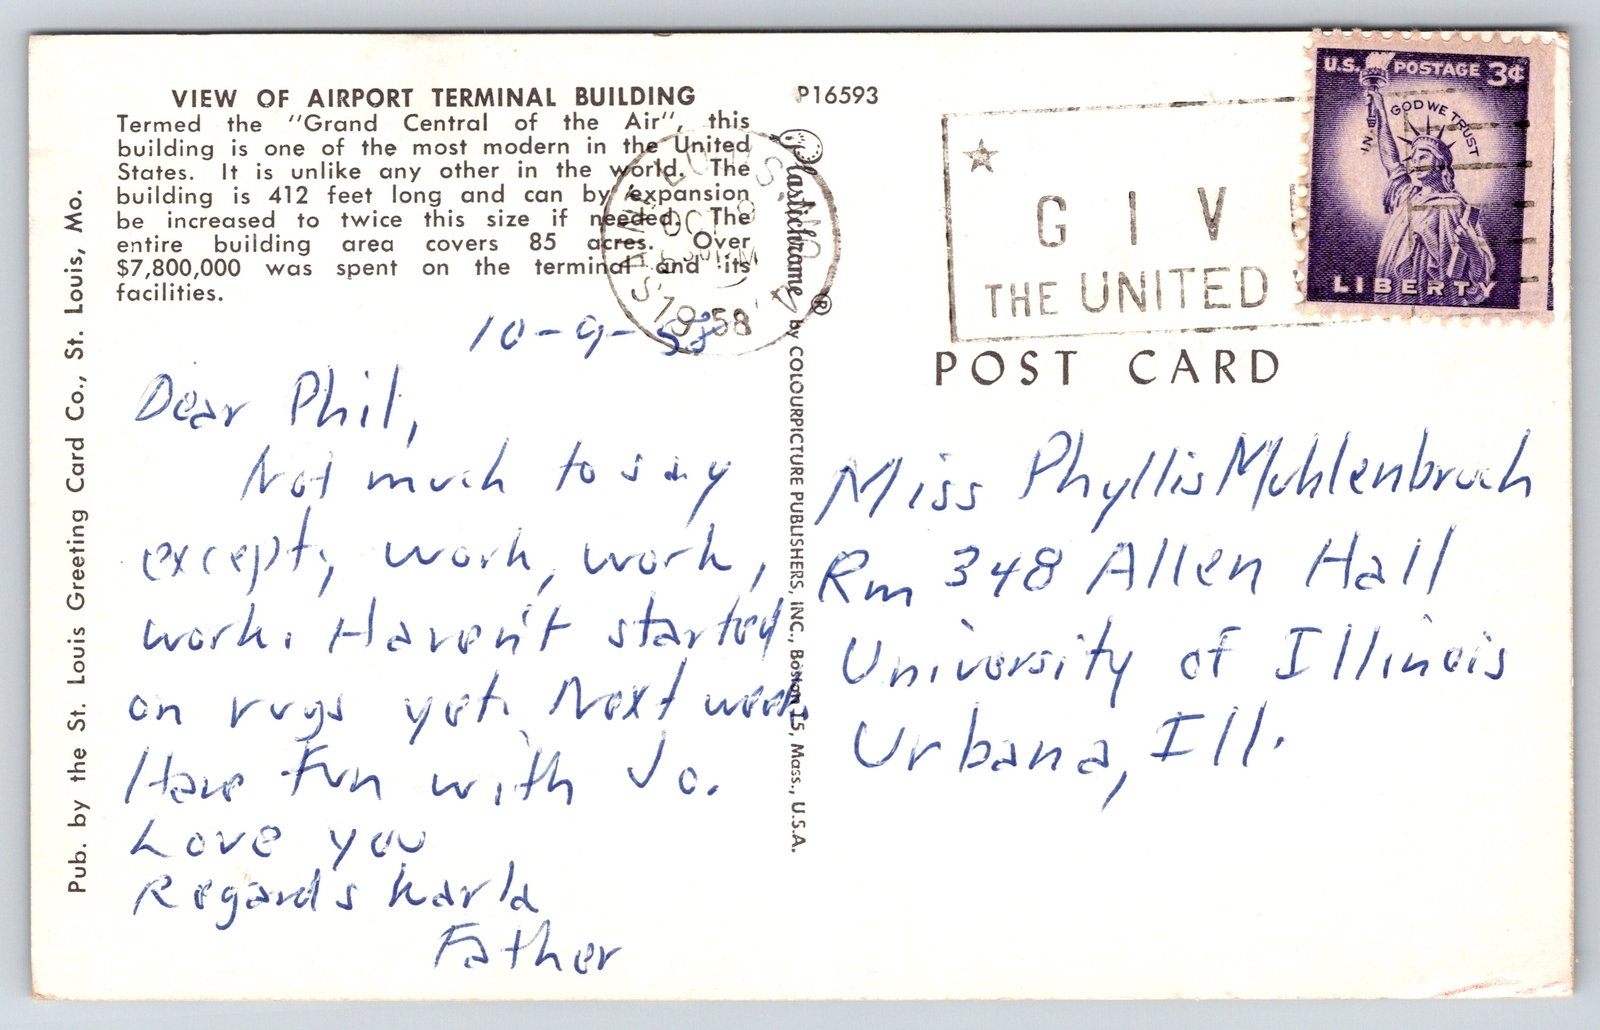 VIEW OF AIRPORT TERMINAL BUILDING
Termed the "Grand Central of the Air", this
building is one of the most modern in the United
States. It is unlike any other in the world. The
building is 412 feet long and can by expansion
be increased to twice this size if needed. The
entire building area covers 85 acres. Over
$7,800,000 was spent on the terminal and its
facilities.
Pub. by the St. Louis Greeting Card Co., St. Louis, Mo.
10-9-58
Dear Phil,
Not much to say
except, work, work,
work. Haven't started
on rugs yet. Next week
Have Fun with Jo.
Love you
Regards Karla
Father
P16593
Plastichrome ® by COLOURPICTURE PUBLISHERS, INC., Boston 15, Mass., U.S.A.
OCT 9
1958
GIV
THE UNITED
U.S. POSTAGE 3¢
IN GOD WE TRUST
LIBERTY
POST CARD
Miss Phyllis Muhlenbruch
Rm 348 Allen Hall
University of Illinois
Urbana, Ill.